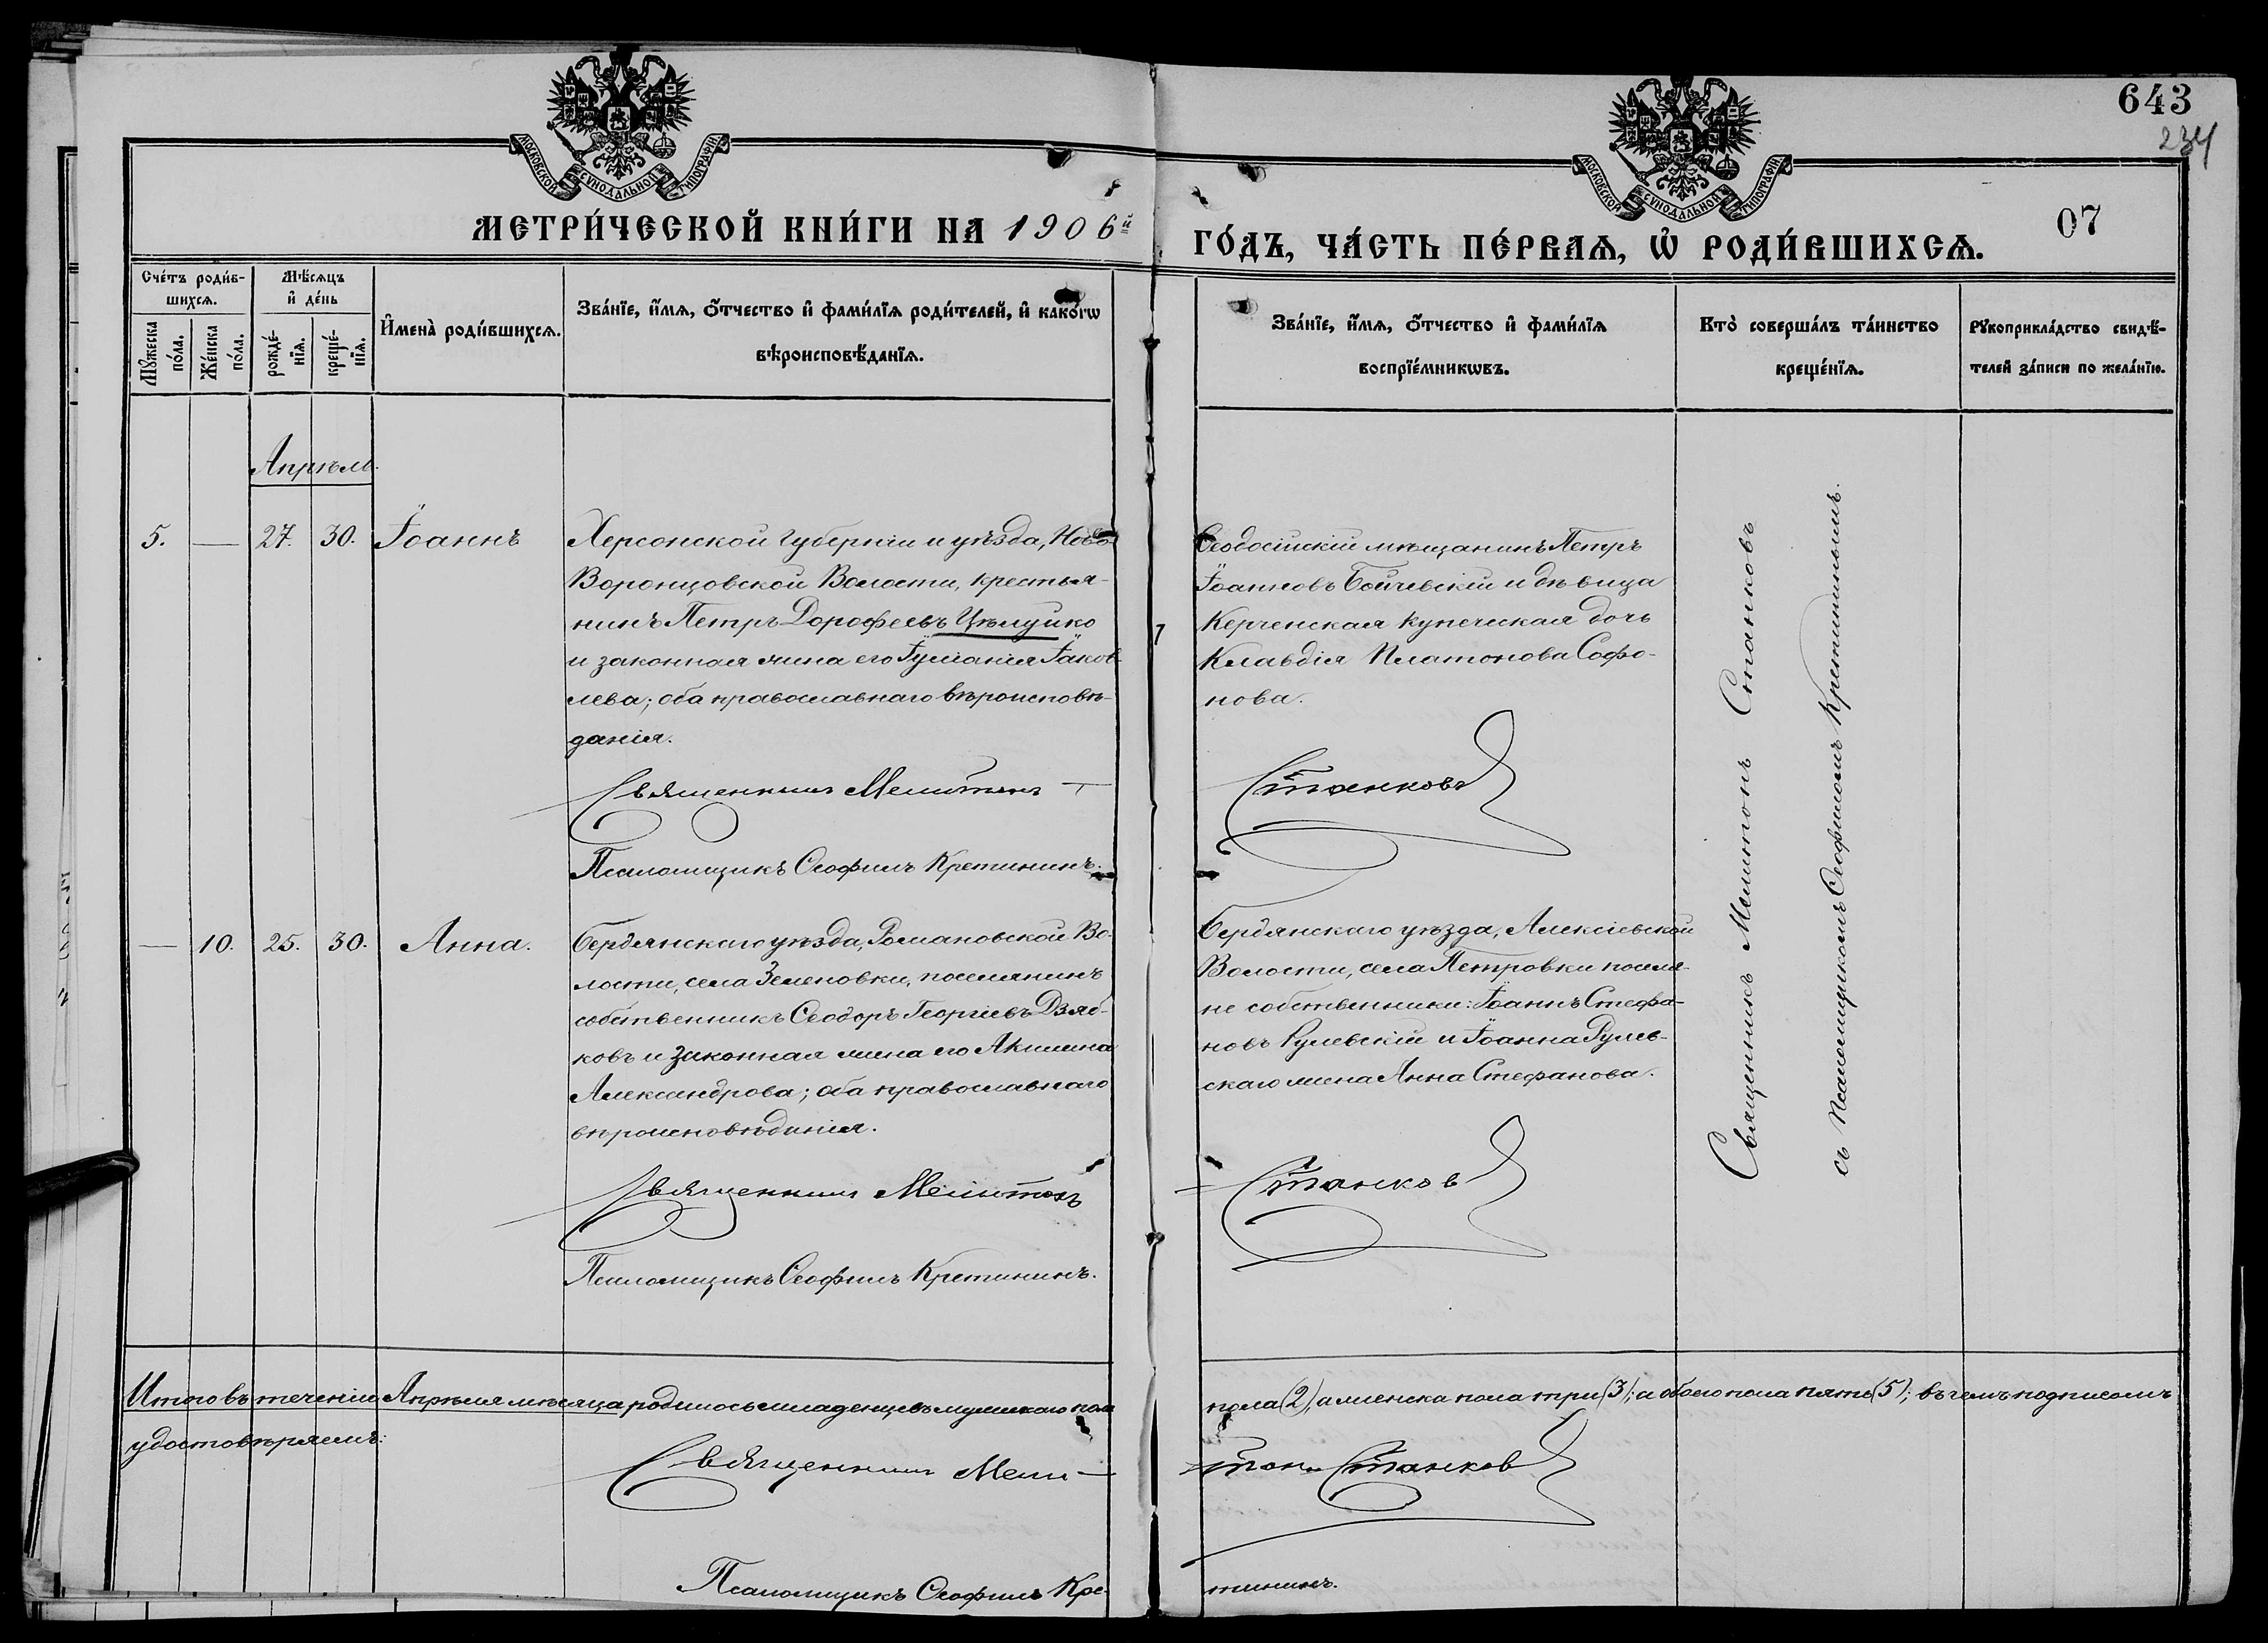 643
234
07
МОСКОВСКОЙ СѴНОДАЛЬНОЙ ТИПОГРАФІИ
МОСКОВСКОЙ СѴНОДАЛЬНОЙ ТИПОГРАФІИ
МЕТРИ́ЧЕСКОЙ КНИ́ГИ НА 1906й
ГО́ДЪ, ЧА́СТЬ ПЕ́РВАѦ, Ѽ РОДИ́ВШИХСѦ.
Сче́тъ роди́в-
шихсѧ.
Мꙋ́жеска
по́ла.
Же́нска
по́ла.
Мѣ́сѧцъ
и҆ де́нь
рожде́-
нїѧ.
креще́-
нїѧ.
И҆мена̀ роди́вшихсѧ.
Зва́нїе, и҆́мѧ, ѻ҆́тчество и҆ фами́лїѧ роди́телей, и҆ како́гѡ
вѣроисповѣ́данїѧ.
Зва́нїе, и҆́мѧ, ѻ҆́тчество и҆ фами́лїѧ
воспрїе́мникѡвъ.
Кто̀ соверша́лъ та́инство
креще́нїѧ.
Рꙋкоприкла́дство свидѣ́-
телей за́писи по жела́нїю.
Апрѣль.
5.
—
27.
30.
Іоаннъ
Херсонской губерніи и уѣзда, Ново-
Воронцовской Волости, крестья-
нинъ Петръ Дорофеевъ Цѣлуйко
и законная жена его Іуліанія Іаков-
лева; оба православнаго вѣроисповѣ-
данія.
Священникъ Мелитонъ
Псаломщикъ Ѳеофилъ Кретининъ.
Ѳеодосійскій мѣщанинъ Петръ
Іоанновъ Бойчевскій и дѣвица
Керченская купеческая дочь
Клавдія Платонова Софо-
нова.
Станковъ
Священникъ Мелитонъ Станковъ
съ Псаломщикомъ Ѳеофиломъ Кретининымъ.
—
10.
25.
30.
Анна.
Бердянскаго уѣзда, Романовской Во-
лости, села Зеленовки, поселянинъ
собственникъ Ѳеодоръ Георгіевъ Дзяб-
ковъ и законная жена его Акилина
Александрова; оба православнаго
вѣроисповѣданія.
Священникъ Мелитонъ
Псаломщикъ Ѳеофилъ Кретининъ.
Бердянскаго уѣзда, Алексіевской
Волости, села Петровки поселя-
не собственники: Іоаннъ Стефа-
новъ Рулевскій и Іоанна Рулев-
скаго жена Анна Стефанова.
Станков
Итого въ теченіи Апрѣля мѣсяца родилось младенцевъ мужескаго пола
пола (2), а женска пола три (3); а обоего пола пять (5); въ чемъ подписомъ
удостовѣряемъ:
Священникъ Мели-
тонъ Станков
Псаломщикъ Ѳеофилъ Кре-
тининъ.